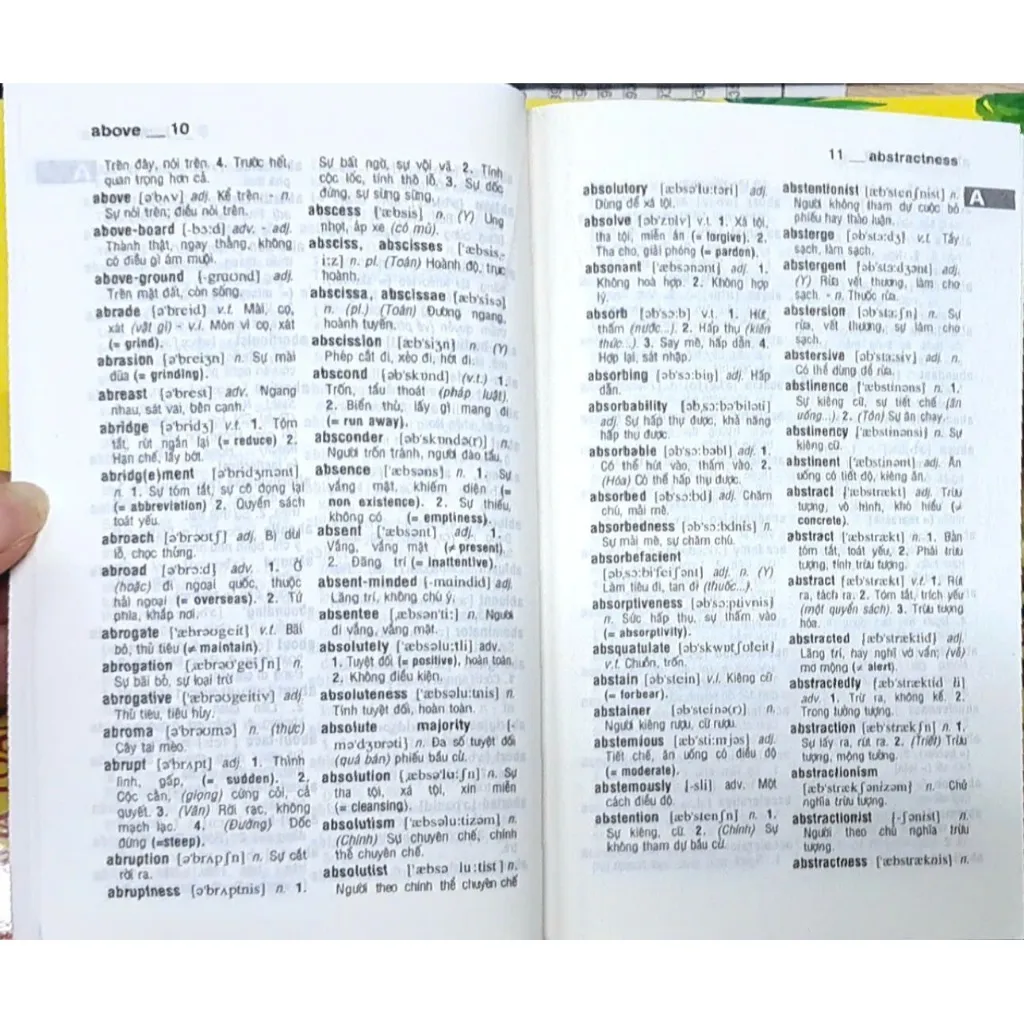 above __ 10
Trên đây, nói trên. 4. Trước hết,
quan trọng hơn cả.
above [ə'bʌv] adj. Kể trên. - n.
Sự nói trên; điều nói trên.
above-board [-bɔ:d] adv. - adj.
Thành thật, ngay thẳng, không
có điều gì ám muội.
above-ground [-graʊnd] adj.
Trên mặt đất, còn sống.
abrade [ə'breid] v.t. Mài, cọ,
xát (vật gì) - v.i. Mòn vì cọ, xát
(= grind).
abrasion [ə'breiʒn] n. Sự mài
dũa (= grinding).
abreast [ə'brest] adv. Ngang
nhau, sát vai, bên cạnh.
abridge [ə'bridʒ] v.t. 1. Tóm
tắt, rút ngắn lại (= reduce) 2.
Hạn chế, lấy bớt.
abridg(e)ment [ə'bridʒmənt]
n. 1. Sự tóm tắt, sự cô đọng lại
(= abbreviation) 2. Quyển sách
toát yếu.
abroach [ə'brəʊtʃ] adj. Bị dùi
lỗ, chọc thủng.
abroad [ə'brɔ:d] adv. 1. Ở
(hoặc) đi ngoại quốc, thuộc
hải ngoại (= overseas). 2. Tứ
phía, khắp nơi.
abrogate ['æbrəʊgeit] v.t. Bãi
bỏ, thủ tiêu (≠ maintain).
abrogation [,æbrəʊ'geiʃn] n.
Sự bãi bỏ, sự loại trừ
abrogative ['æbrəʊgeitiv] adj.
Thủ tiêu, tiêu hủy.
abroma [ə'brəʊmə] n. (thực)
Cây tai mèo.
abrupt [ə'brʌpt] adj. 1. Thình
lình, gấp, (= sudden). 2.
Cộc cằn, (giọng) cứng cỏi, cả
quyết. 3. (Văn) Rời rạc, không
mạch lạc. 4. (Đường) Dốc
đứng (=steep).
abruption [ə'brʌpʃn] n. Sự cắt
rời ra.
abruptness [ə'brʌptnis] n. 1.
Sự bất ngờ, sự vội vã. 2. Tính
cộc lốc, tính thô lỗ. 3. Sự dốc
đứng, sự sừng sững.
abscess ['æbsis] n. (Y) Ung
nhọt, áp xe (có mủ).
absciss, abscisses ['æbsis,
-i:z] n. pl. (Toán) Hoành độ, trục
hoành.
abscissa, abscissae [æb'sisə]
n. (pl.) (Toán) Đường ngang,
hoành tuyến.
abscission [æb'siʒn] n. (Y)
Phép cắt đi, xẻo đi, hớt đi.
abscond [əb'skɒnd] (v.t.) 1.
Trốn, tẩu thoát (pháp luật).
2. Biển thủ, lấy gì mang đi
(= run away).
absconder [əb'skɒndə(r)] n.
Người trốn tránh, người đào tẩu.
absence ['æbsəns] n. 1. Sự
vắng mặt, khiếm diện (=
non existence). 2. Sự thiếu,
không có (= emptiness).
absent ['æbsənt] adj. 1.
Vắng, vắng mặt (≠ present).
2. Đãng trí (= inattentive).
absent-minded [-maindid] adj.
Lãng trí, không chú ý.
absentee [,æbsən'ti:] n. Người
đi vắng, vắng mặt.
absolutely ['æbsəlu:tli] adv.
1. Tuyệt đối (= positive), hoàn toàn.
2. Không điều kiện.
absoluteness ['æbsəlu:tnis] n.
Tính tuyệt đối, hoàn toàn.
absolute majority [-
mə'dʒɒrəti] n. Đa số tuyệt đối
(quá bán) phiếu bầu cử.
absolution [,æbsə'lu:ʃn] n. Sự
tha tội, xá tội, xin miễn
(= cleansing).
absolutism ['æbsəlu:tizəm] n.
(Chính) Sự chuyên chế, chính
thể chuyên chế.
absolutist ['æbsə lu:tist] n.
Người theo chính thể chuyên chế
11 __ abstractness
A
absolutory [æbsə'lu:təri] adj.
Dùng để xá tội.
absolve [əb'zɒlv] v.t. 1. Xá tội,
tha tội, miễn án (= forgive). 2.
Tha cho, giải phóng (= pardon).
absonant ['æbsənənt] adj. 1.
Không hoà hợp. 2. Không hợp
lý.
absorb [əb'sɔ:b] v.t. 1. Hút,
thấm (nước...). 2. Hấp thụ (kiến
thức...). 3. Say mê, hấp dẫn. 4.
Hợp lại, sát nhập.
absorbing [əb'sɔ:biŋ] adj. Hấp
dẫn.
absorbability [əb,sɔ:bə'biləti]
adj. Sự hấp thụ được, khả năng
hấp thụ được.
absorbable [əb'sɔ:bəbl] adj. 1.
Có thể hút vào, thấm vào. 2.
(Hóa) Có thể hấp thụ được.
absorbed [əb'sɔ:bd] adj. Chăm
chú, mải mê.
absorbedness [əb'sɔ:bdnis] n.
Sự mải mê, sự chăm chú.
absorbefacient
[əb,sɔ:bi'feiʃənt] adj. n. (Y)
Làm tiêu đi, tan đi (thuốc...).
absorptiveness [əb'sɔ:ptivnis]
n. Sức hấp thụ, sự thấm vào
(= absorptivity).
absquatulate [əb'skwɒtʃʊleit]
v.t. Chuồn, trốn.
abstain [əb'stein] v.i. Kiêng cữ
(= forbear).
abstainer [əb'steinə(r)] n.
Người kiêng rượu, cữ rượu.
abstemious [æb'sti:mjəs] adj.
Tiết chế, ăn uống có điều độ
(= moderate).
abstemously [-sli] adv. Một
cách điều độ.
abstention [æb'stenʃn] n. 1.
Sự kiêng, cữ. 2. (Chính) Sự
không tham dự bầu cử.
abstentionist [æb'stenʃnist] n.
Người không tham dự cuộc bỏ
phiếu hay thảo luận.
absterge [əb'stɜ:dʒ] v.t Tẩy
sạch, làm sạch.
abstergent [əb'stɜ:dʒənt] adj.
(Y) Rửa vết thương, làm cho
sạch. - n. Thuốc rửa.
abstersion [əb'stɜ:ʃn] n. Sự
rửa, vết thương, sự làm cho
sạch.
abstersive [əb'stɜ:siv] adj. n.
Có thể dùng để rửa.
abstinence ['æbstinəns] n. 1.
Sự kiêng cữ, sự tiết chế (ăn
uống...). 2. (Tôn) Sự ăn chay.
abstinency ['æbstinənsi] n. Sự
kiêng cữ.
abstinent ['æbstinənt] adj. Ăn
uống có tiết độ, kiêng ăn.
abstract ['æbstrækt] adj. Trừu
tượng, vô hình, khó hiểu (≠
concrete).
abstract ['æbstrækt] n. 1. Bản
tóm tắt, toát yếu. 2. Phái trừu
tượng, tính trừu tượng.
abstract [æb'strækt] v.t. 1. Rút
ra, tách ra. 2. Tóm tắt, trích yếu
(một quyển sách). 3. Trừu tượng
hóa.
abstracted [æb'stræktid] adj.
Lãng trí, hay nghĩ vơ vẩn; (vẻ)
mơ mộng (≠ alert).
abstractedly [æb'stræktid li]
adv. 1. Trừ ra, không kể. 2.
Trong tưởng tượng.
abstraction [æb'strækʃn] n. 1.
Sự lấy ra, rút ra. 2. (Triết) Trừu
tượng, mộng tưởng.
abstractionism
[æb'strækʃənizəm] n. Chủ
nghĩa trừu tượng.
abstractionist [-ʃənist] n.
Người theo chủ nghĩa trừu
tượng.
abstractness ['æbstræknis] n.